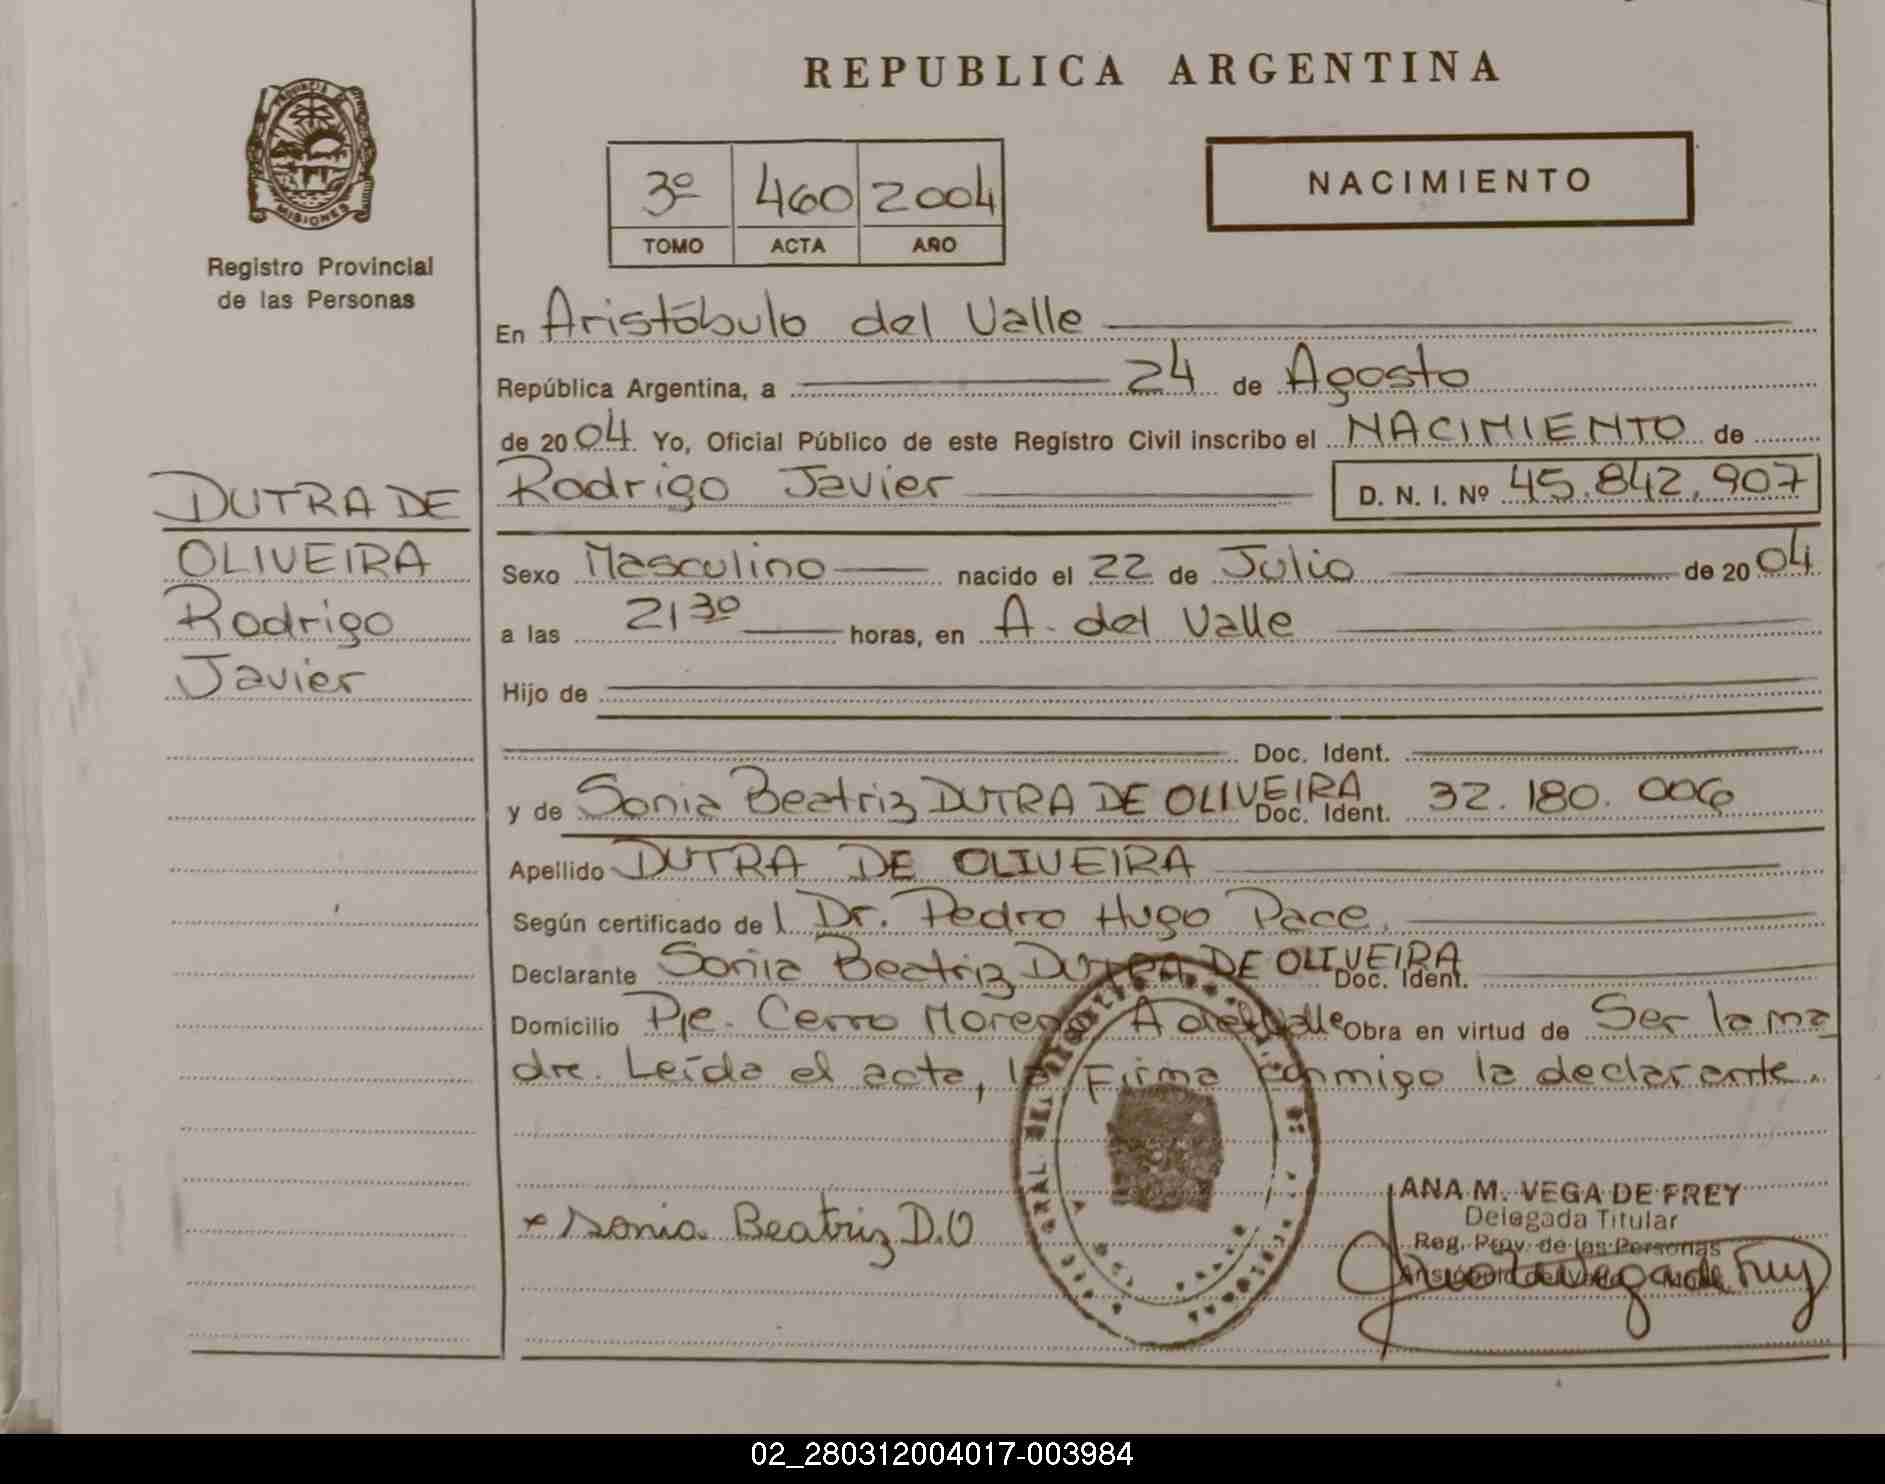 REPUBLICA ARGENTINA
PROVINCIA DE
MISIONES
Registro Provincial
de las Personas
3º 460 2004
TOMO ACTA AÑO
NACIMIENTO
En Aristóbulo del Valle
República Argentina, a 24 de Agosto
de 2004 Yo, Oficial Público de este Registro Civil inscribo el NACIMIENTO de
Rodrigo Javier D. N. I. Nº 45.842.907
DUTRA DE
OLIVEIRA
Rodrigo
Javier
Sexo Masculino nacido el 22 de Julio de 2004
a las 21 30 horas, en A. del Valle
Hijo de
Doc. Ident.
y de Sonia Beatriz DUTRA DE OLIVEIRA Doc. Ident. 32.180.006
Apellido DUTRA DE OLIVEIRA
Según certificado del Dr. Pedro Hugo Pace.
Declarante Sonia Beatriz DUTRA DE OLIVEIRA Doc. Ident.
Domicilio Pje. Cerro Moreno A del Valle Obra en virtud de Ser la ma
dre. Leída el acta, la Firma conmigo la declarante.
x Sonia Beatriz D.O
ANA M. VEGA DE FREY
Delegada Titular
Reg. Prov. de las Personas
02_280312004017-003984